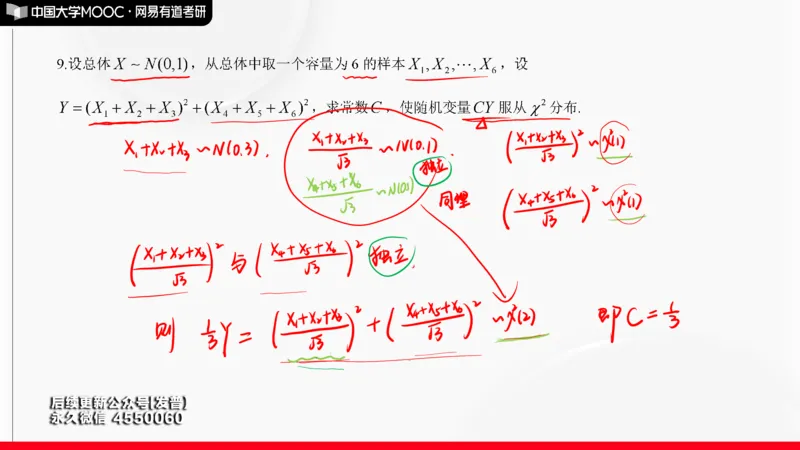 中国大学MOOC·网易有道考研
9.设总体 X ~ N(0,1)，从总体中取一个容量为 6 的样本 X₁,X₂,⋯,X₆，设
Y=(X₁+X₂+X₃)²+(X₄+X₅+X₆)²，求常数C，使随机变量CY 服从 χ² 分布.
X₁+X₂+X₃ ~ N(0.3).
(X₁+X₂+X₃)/√3 ~ N(0.1).
(X₄+X₅+X₆)/√3 ~ N(0,1)
独立
同理
((X₁+X₂+X₃)/√3)² ~ χ²(1)
((X₄+X₅+X₆)/√3)² ~ χ²(1)
((X₁+X₂+X₃)/√3)² 与 ((X₄+X₅+X₆)/√3)² 独立.
则 ⅓Y = ((X₁+X₂+X₃)/√3)² + ((X₄+X₅+X₆)/√3)² ~ χ²(2) 即 C = ⅓
后续更新公众号[发普]
永久微信 4550060